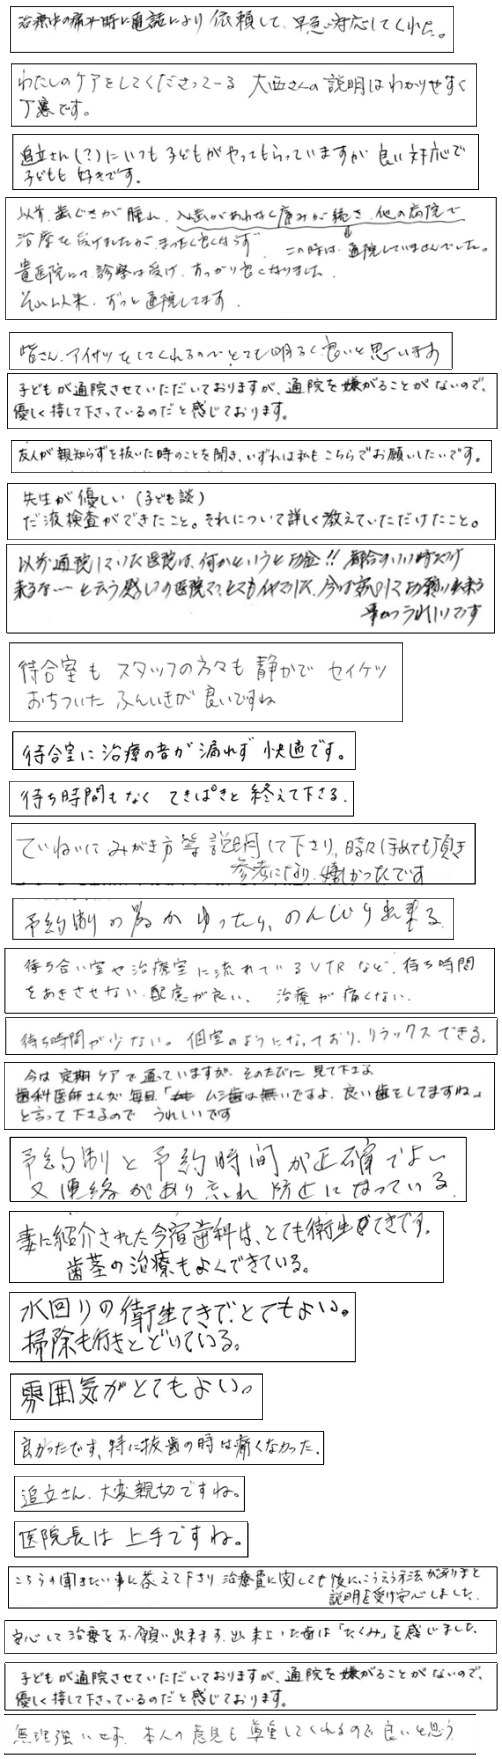 治療中の痛み時に電話により依頼して、早急に対応してくれた。
わたしのケアをしてくださってーる 大西さんの説明はわかりやすく
丁寧です。
追立さん(?)にいつも子どもがやってもらっていますが 良い対応で
子どもも好きです。
以前、歯ぐきが腫れ、入歯があわなく痛みが続き、他の病院で
治療を受けましたが、まったく良くならず この時は、通院していませんでした。
貴医院にて診察を受け、すっかり良くなりました。
それ以来、ずっと通院してます。
皆さん、アイサツをしてくれるのでとても明るく良いと思います
子どもが通院させていただいておりますが、通院を嫌がることがないので、
優しく接して下さっているのだと感じております。
友人が親知らずを抜いた時のことを聞き、いずれは私もこちらでお願いしたいです。
先生が優しい(子ども談)
だ液検査ができたこと。それについて詳しく教えていただけたこと。
以前通院していた医院は、何かというとお金!! 都合のいい時だけ
来るな と云う感じの医院で、とても 今は安心してお願い出来る
事がうれしいです
待合室も スタッフの方々も静かで セイケツ
おちついた ふんいきが良いですね
待合室に治療の音が漏れず 快適です。
待ち時間もなく てきぱきと 終えて下さる。
ていねいにみがき方等説明して下さり、時々ほめても頂き
参考になり、嬉しかったです
予約制の為か ゆったり、のんびり出来る
待ち合い室や治療室に流れているVTRなど、待ち時間
をあきさせない配慮が良い。 治療が痛くない。
待ち時間が少ない。個室のようになっており、リラックスできる。
今は定期ケアで通っていますが、そのたびに見て下さる
歯科医師さんが毎回「ムシ歯は無いですよ、良い歯をしてますね。」
と言って下さるので うれしいです
予約制と予約時間が正確でよい
又連絡があり忘れ防止になっている。
妻に紹介された今宿歯科は、とても衛生てきです。
歯茎の治療もよくできている。
水回りの衛生てきで、とてもよい。
掃除も行きとどいている。
雰囲気がとてもよい。
良かったです、特に抜歯の時は痛くなかった。
追立さん、大変親切ですね。
医院長は 上手ですね。
こちらの聞きたい事に答えて下さり、治療費に関しても後にこういう方法がありますと
説明を受け安心しました。
安心して治療をお願い出来ます。出来上った歯は「たくみ」を感じました。
子どもが通院させていただいておりますが、通院を嫌がることがないので、
優しく接して下さっているのだと感じております。
無理強いせず、本人の意見も尊重してくれるので良いと思う